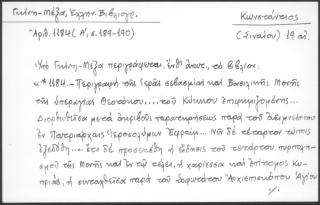 Γκίνη-Μέξα, Ἑλλην. Βιβλιογρ.
Κωνστάντιος
Ἀριθ. 1184 (Α', σ. 189-190)
(Σιναΐου) 19 αἰ.
Ὑπὸ Γκίνη-Μέξα περιγράφεται, ἔνθ' ἄνωτ., τὸ βιβλίον:
«*1184.- Περιγραφὴ τῆς ἱερᾶς σεβασμίας καὶ Βασιλικῆς Μονῆς
τῆς ὑπεραγίας Θεοτόκου,.... τοῦ Κύκκου ἐπιφημιζομένης...
Διορθωθεῖσα μετὰ ἀκριβοῦς παρατηρήσεως παρὰ τοῦ ἀειμνήστου
ἐν Πατριάρχαις Ἱεροσολύμων Ἐφραίμ... Νῦν δὲ τέταρτον τύποις
ἐξεδόθη... ἔτι δὲ προσετέθη ἡ εἴδησις τοῦ τετάρτου πυρπολη-
σμοῦ τῆς Μονῆς καὶ ἐν τῷ τέλει, ἡ χαρίεσσα καὶ ἐπίτομος Κυ-
πριάς, ἡ συντεθεῖσα παρὰ τοῦ σοφωτάτου Ἀρχιεπισκόπου Ἁγίου
·/.